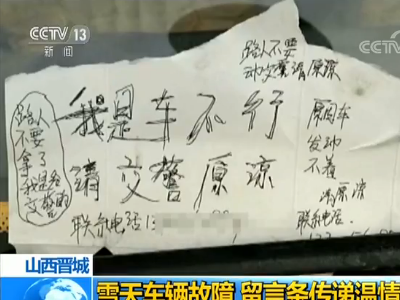 CCTV 13
新闻
CCTV
路人不要
动欠票请原凉
我是车不行
请交警原凉
路人
不要了
拿
我是给
交警的
因车
发动
不着
请原凉
联系电话:
联系电话:
山西晋城
雪天车辆故障 留言条传递温情